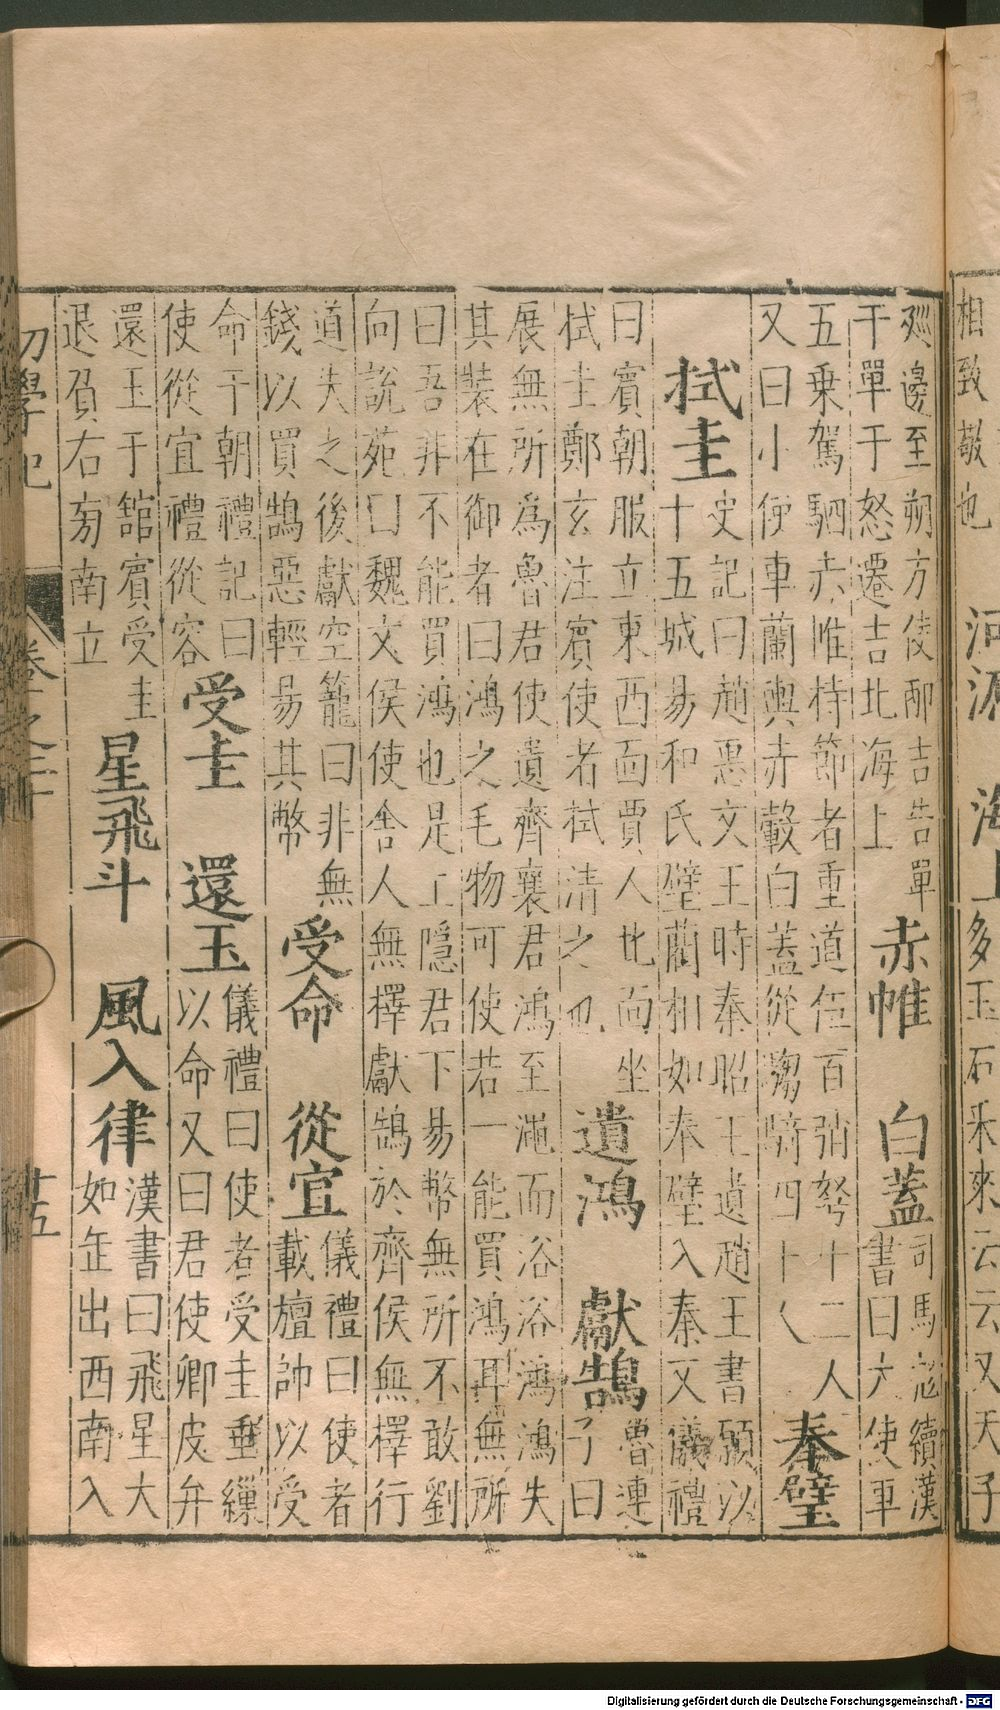 相致敬也
河源 海上
多玉石采來云云又天子
廵邊至朔方使郭吉告單
于單于怒遷吉北海上
赤帷 白蓋
司馬彪續漢
書曰大使車
五乗駕駟赤帷持節者重道伍百弩十二人
又曰小使車蘭輿赤轂白蓋從騶騎四十人
奉璧 拭圭
史記曰趙惠文王時秦昭王遺趙王書願以
十五城易和氏璧藺相如奉璧入秦又儀禮
曰賓朝服立東西面賈人北面坐
拭圭鄭玄注賓使者拭清之也
遺鴻 獻鵠
魯連
子曰
展無所為魯君使遺齊襄君鴻至澠而浴浴鴻鴻失
其裝在御者曰鴻之毛物可使若一能買鴻耳無所
曰吾非不能買鴻也是上隱君下易幣無所不敢劉
向說苑曰魏文侯使舍人無擇獻鵠於齊侯無擇行
道失之後獻空籠曰非無
錢以買鵠惡輕易其幣
受命 從宜
儀禮曰使者
載旜帥以受
命于朝禮記曰
使從宜禮從容
受圭 還玉
儀禮曰使者受圭垂繅
以命又曰君使卿皮弁
還玉于舘賓受圭
退負右旁南立
星飛斗 風入律
漢書曰飛星大
如缶出西南入
初學記
卷二十
廿五
Digitalisierung gefördert durch die Deutsche Forschungsgemeinschaft - DFG